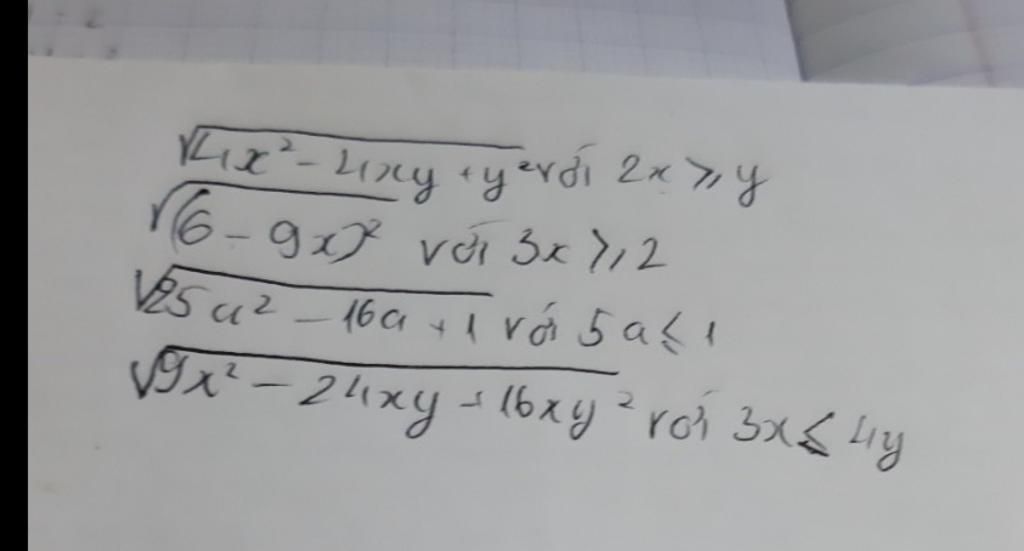 √4x² - 4xy + y² với 2x ≥ y
√(6 - 9x)² với 3x ≥ 2
√25a² - 16a + 1 với 5a ≤ 1
√9x² - 24xy + 16xy² với 3x ≤ 4y